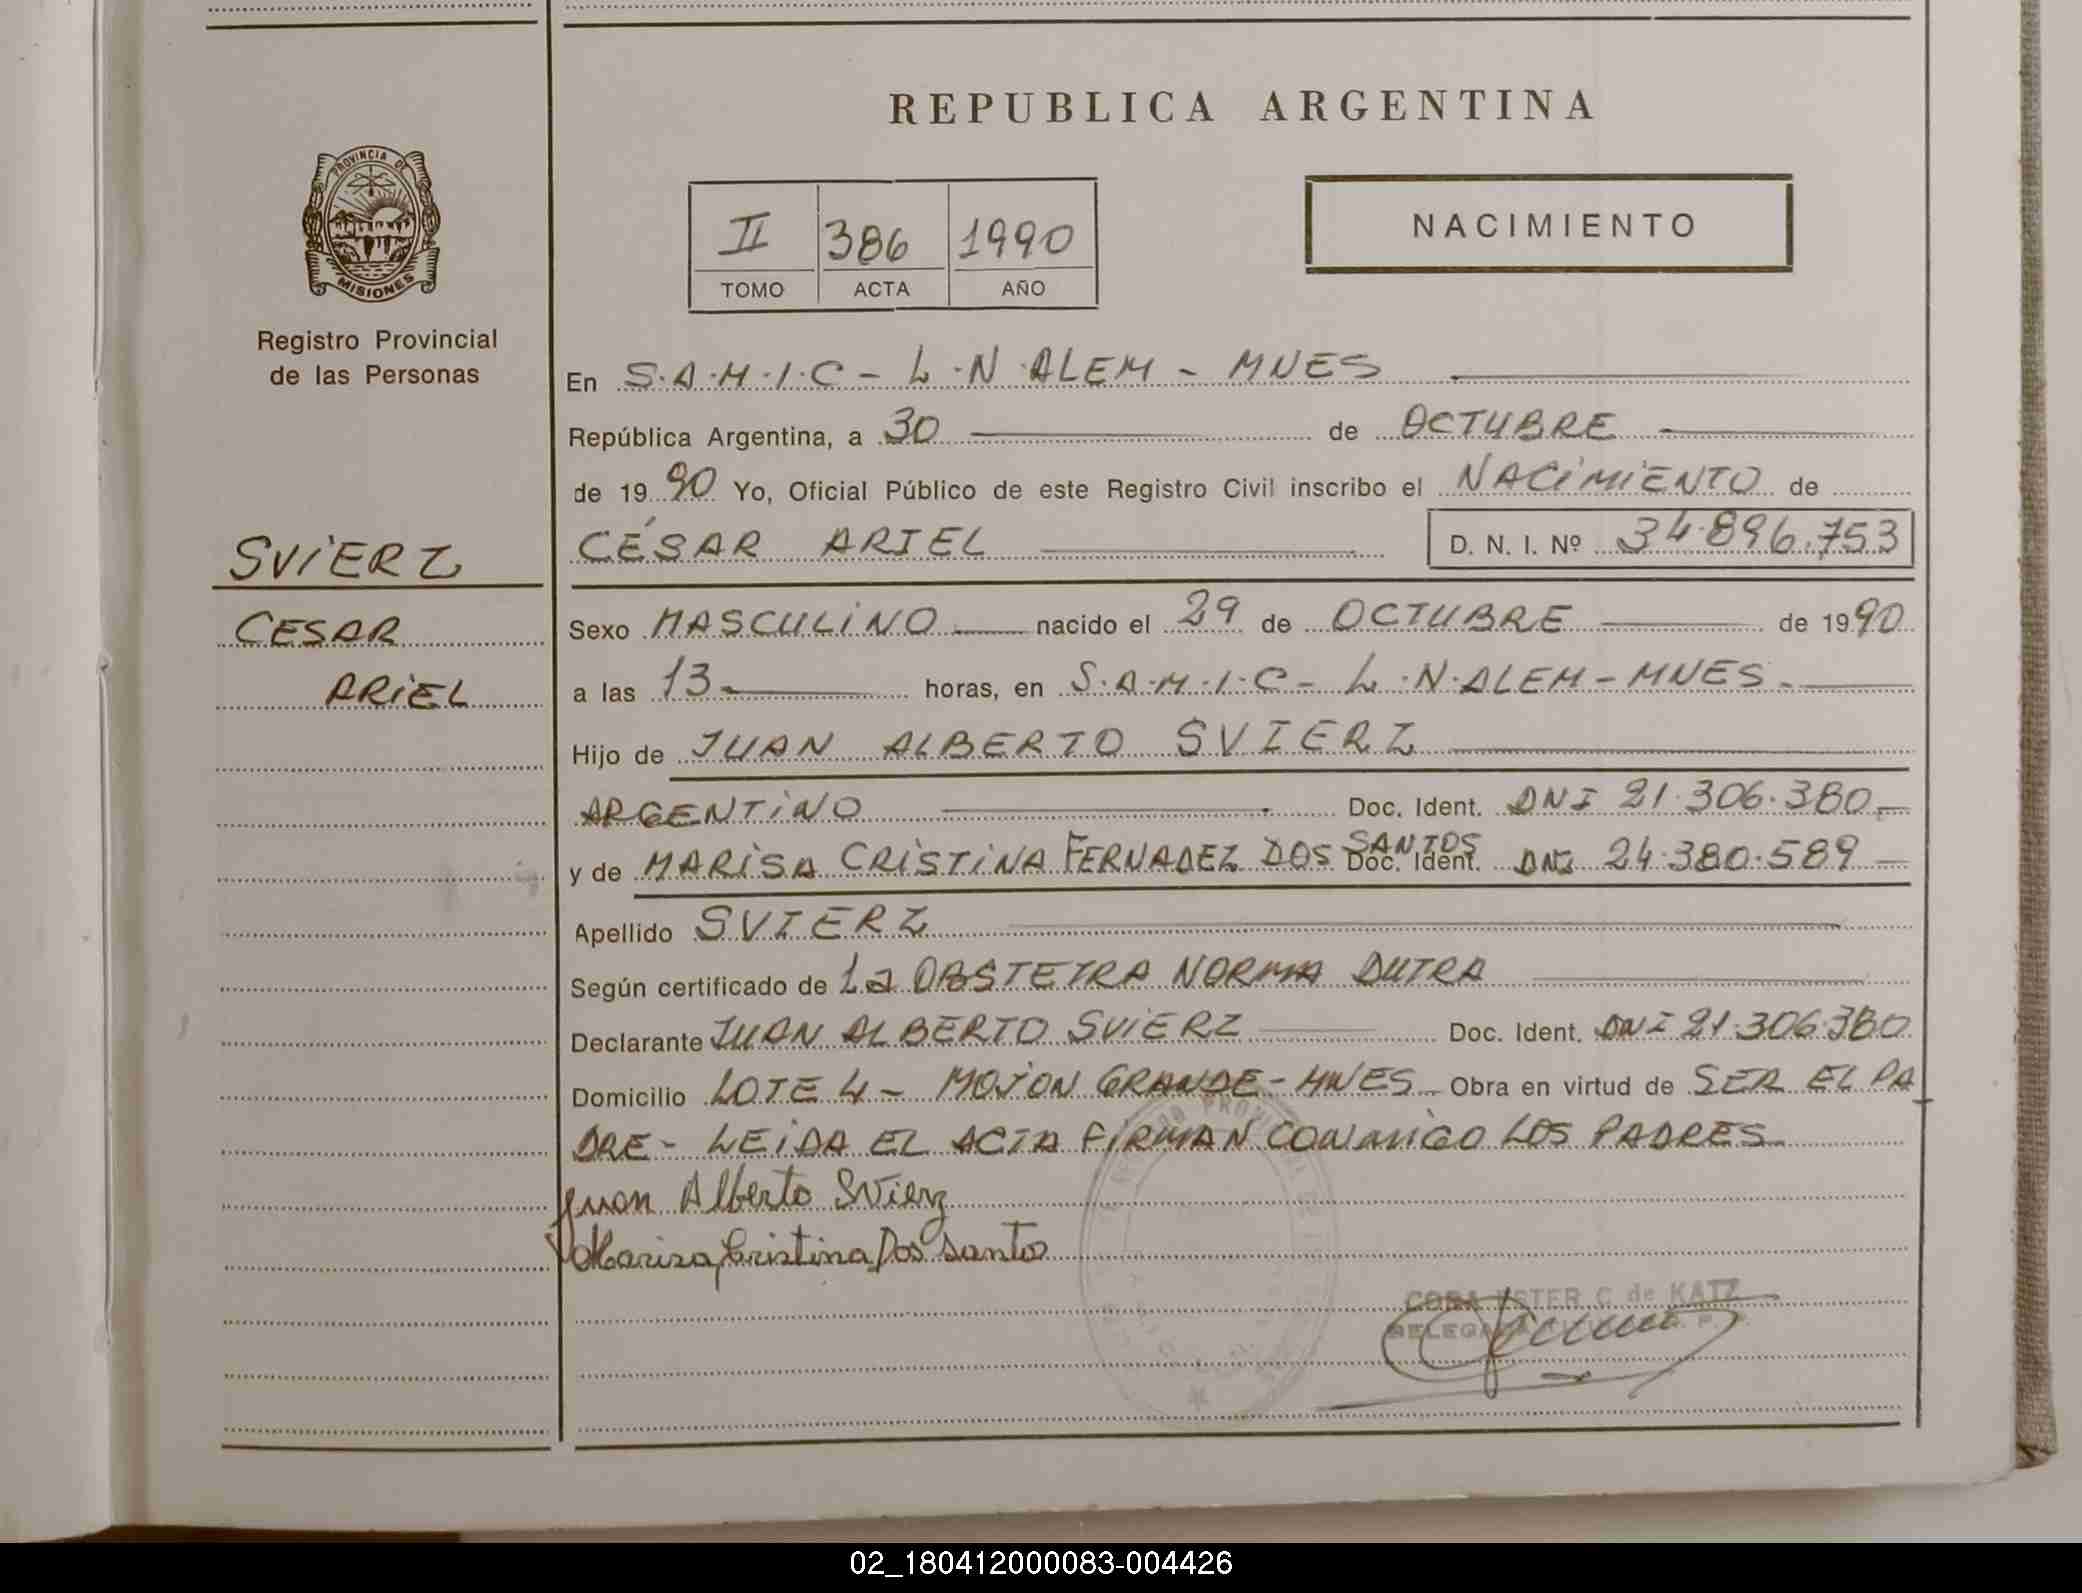 REPUBLICA ARGENTINA
PROVINCIA DE
MISIONES
Registro Provincial
de las Personas
II 386 1990
TOMO ACTA AÑO
NACIMIENTO
SVIERZ
CESAR
ARIEL
En S.A.M.I.C - L.N.ALEM - MNES
República Argentina, a 30 de OCTUBRE
de 1990 Yo, Oficial Público de este Registro Civil inscribo el NACIMIENTO de
CÉSAR ARIEL D. N. I. Nº 34.896.753
Sexo MASCULINO nacido el 29 de OCTUBRE de 1990
a las 13 horas, en S.A.M.I.C - L.N.ALEM - MNES.
Hijo de JUAN ALBERTO SVIERZ
ARGENTINO Doc. Ident. DNI 21.306.380
y de MARISA CRISTINA FERNADEZ DOS SANTOS Doc. Ident. DNI 24.380.589
Apellido SVIERZ
Según certificado de La OBSTETRA NORMA DUTRA
Declarante JUAN ALBERTO SVIERZ Doc. Ident. DNI 21.306.380
Domicilio LOTE 4 - MOJON GRANDE - MNES Obra en virtud de SER EL PA
DRE - LEIDA EL ACTA FIRMAN CONMIGO LOS PADRES
Juan Alberto Svierz
Marisa Cristina Dos Santos
ESTER C de KATZ
02_180412000083-004426